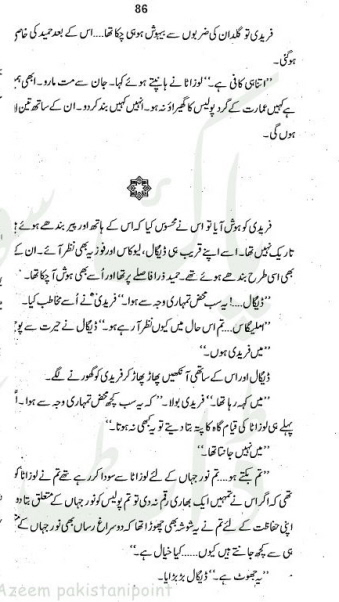 86
فریدی تو گلدان کی ضربوں سے بیہوش ہو ہی چکا تھا....اس کے بعد حمید کی خاصی
ہو گئی۔
”اتنا ہی کافی ہے۔“ لوزاٹا نے ہانپتے ہوئے کہا۔ جان سے مت مارو۔ ابھی ہمیں
ہے کہیں عمارت کے گرد پولیس کا گھیراؤ نہ ہو۔ انہیں کہیں بند کر دو۔ ان کے ساتھ تین
ہوں گی۔
فریدی کو ہوش آیا تو اس نے محسوس کیا کہ اس کے ہاتھ اور پیر بندھے ہوئے
تاریک نہیں تھا۔ اسے اپنے قریب ہی ڈیگال، لیوکاس اور فوزیہ بھی نظر آئے۔ ان کے
بھی اسی طرح بندھے ہوئے تھے۔ حمید ذرا فاصلے پر تھا اور اُسے بھی ہوش آ چکا تھا۔
”ڈیگال....! یہ سب محض تمہاری وجہ سے ہوا۔“ فریدی نے اُسے مخاطب کیا۔
”اصلیگاس....تم اس حال میں کیوں نظر آ رہے ہو۔“ ڈیگال نے حیرت سے
”میں فریدی ہوں۔“
ڈیگال اور اس کے ساتھی آنکھیں پھاڑ پھاڑ کر فریدی کو گھورنے لگے۔
”میں کہہ رہا تھا۔“ فریدی بولا۔ ”کہ یہ سب کچھ محض تمہاری وجہ سے ہوا۔
پہلے ہی لوزاٹا کی قیام گاہ کا پتہ بتا دیتے تو یہ کبھی نہ ہوتا۔“
”میں نہیں جانتا تھا۔“
”تم بکتے ہو....تم نور جہاں کے لئے لوزاٹا سے سودا کر رہے تھے تم نے لوزاٹا کو
تھی کہ اگر اس نے تمہیں ایک بھاری رقم نہ دی تو تم پولیس کو نور جہاں کے متعلق بتا دو
اپنی حفاظت کے لئے تم نے یہ شوشہ بھی چھوڑا تھا کہ دو سراغ رساں بھی نور جہاں کے
ہی سے کچھ جانتے ہیں کیوں......کیا خیال ہے۔“
”یہ جھوٹ ہے۔“ ڈیگال بڑبڑایا۔
Azeem pakistanipoint